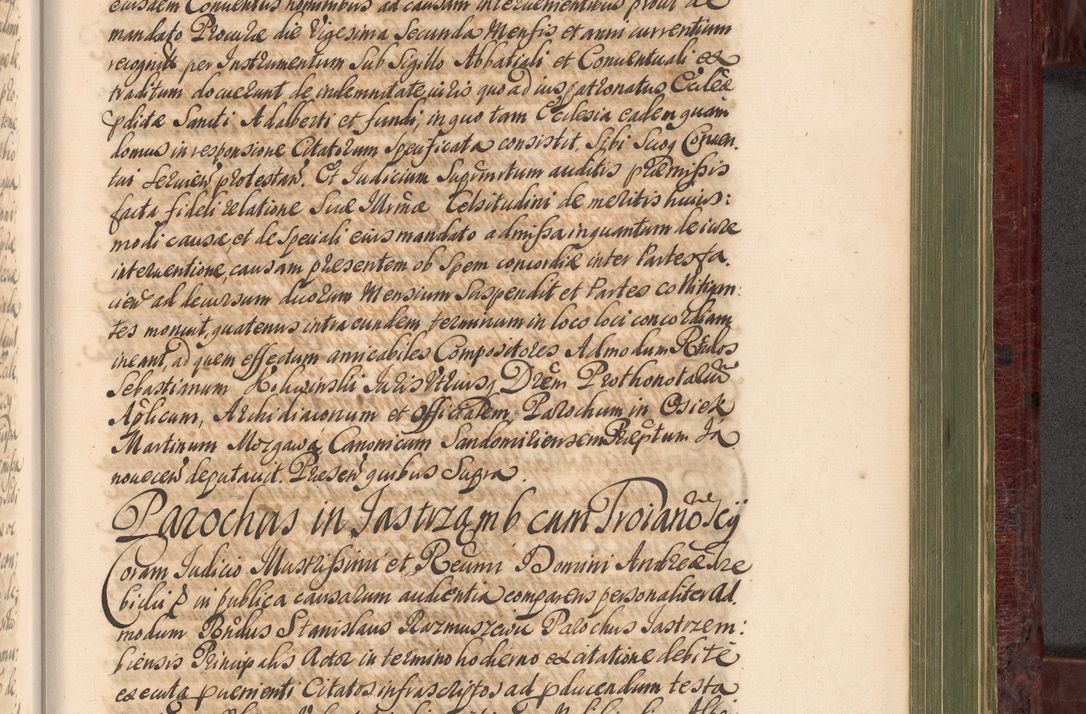 eiusdem Conventus hominibus ad causam intervenientibus prout de
mandato Procurae die Vigesima Secunda Mensis et anni currentium
recognit per Instrumentum Sub Sigillo Abbatiali et Conventuali ex
traditum docuerunt de indemnitate iuris quo ad ius patronatus Eccl̃ae
p̱ditae Sancti Adalberti et fundi, in quo tam Ecclesia eadem quam
domus in responsione Citatorum Specificata consistit. Sibi Suoq Conven.
tui Servieñ protestañ. Et Iudicium Suprãsritum auditis praemissis
facta fideli relatione Suae Illr̃mae Celsitudini de meritis huius:
modi causae, et de Speciali eius mandato admissa inquantum de iure
interventione, causam praesentem ob Spem concordiae inter Partes fa.
cieñ ad decursum duorum Mensium Suspendit et Partes co
tes monuit, quatenus intra eundem terminum in loco loci concordiam
ineant, ad quem effectum amicabiles Compositores Admodum Rñdos
Sebastianum Iuris Utriusq Drẽm Prothonotariũ
Ap̃licum, Archidiaconum et Officialem, Parochum in Osiek
Martinum Morgawa Canonicum Sandomiriensem Praeptum Ja
noveceñ deputavit. Praeseñ quibus Supra.
Parochus in Jastrzamb cum Troianoscÿ
Coram Iudicio Illustrissimi et Reũmi Domini Andreae Tre
bicki P in publica causarum audientia comparens personaliter Ad.
modum Rñdus Stanislaus Razmuszewic Parochus Jastrzem:
biensis Principalis Actor in termino hodierno ex citatione debite
executa ꝑuenienti Citatos infrascriptos ad ꝓducendum testa